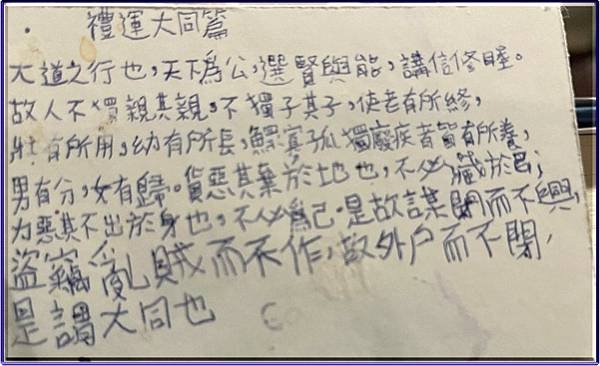 禮運大同篇
大道之行也,天下為公,選賢與能,講信修睦。
故人不獨親其親,不獨子其子,使老有所終,
壯有所用,幼有所長,鰥寡孤獨廢疾者皆有所養,
男有分,女有歸。貨惡其棄於地也,不必藏於己,
力惡其不出於身也,不必為己.是故謀閉而不興,
盜竊亂賊而不作,故外户而不閉,
是謂大同也